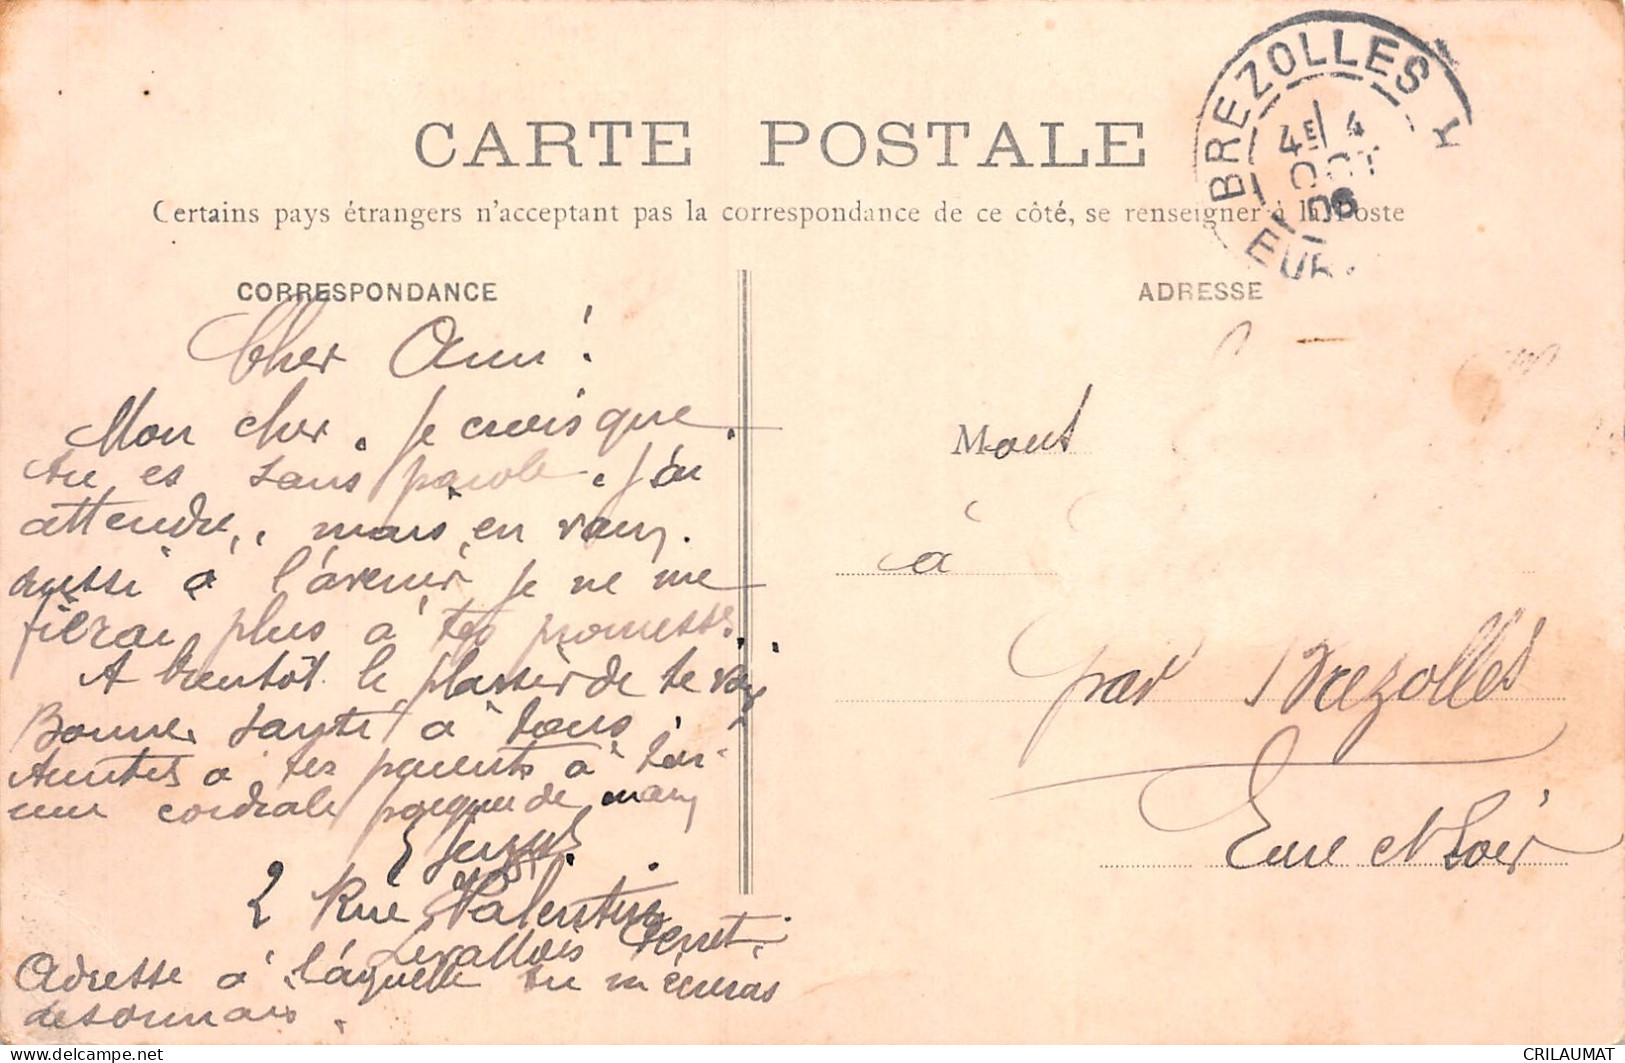 CARTE POSTALE
Certains pays étrangers n'acceptant pas la correspondance de ce côté, se renseigner à la Poste
BREZOLLES
4E 4
OCT
06
EUR
CORRESPONDANCE
ADRESSE
Cher Ami !
Mon cher. Je crois que
tu es sans parole. J'ai
attendu, mais en vain.
aussi à l'avenir je ne me
fierai plus à tes promesses.
A bientôt le plaisir de te voir
Bonne santé à tous
Amitiés à tes parents à toi
une cordiale poignée de main
2 Rue Valentin
Levallois Perret.
Adresse à laquelle tu m'écriras
désormais.
M
à
par Brezolles
Eure et Loir
CRILAUMAT
delcampe.net